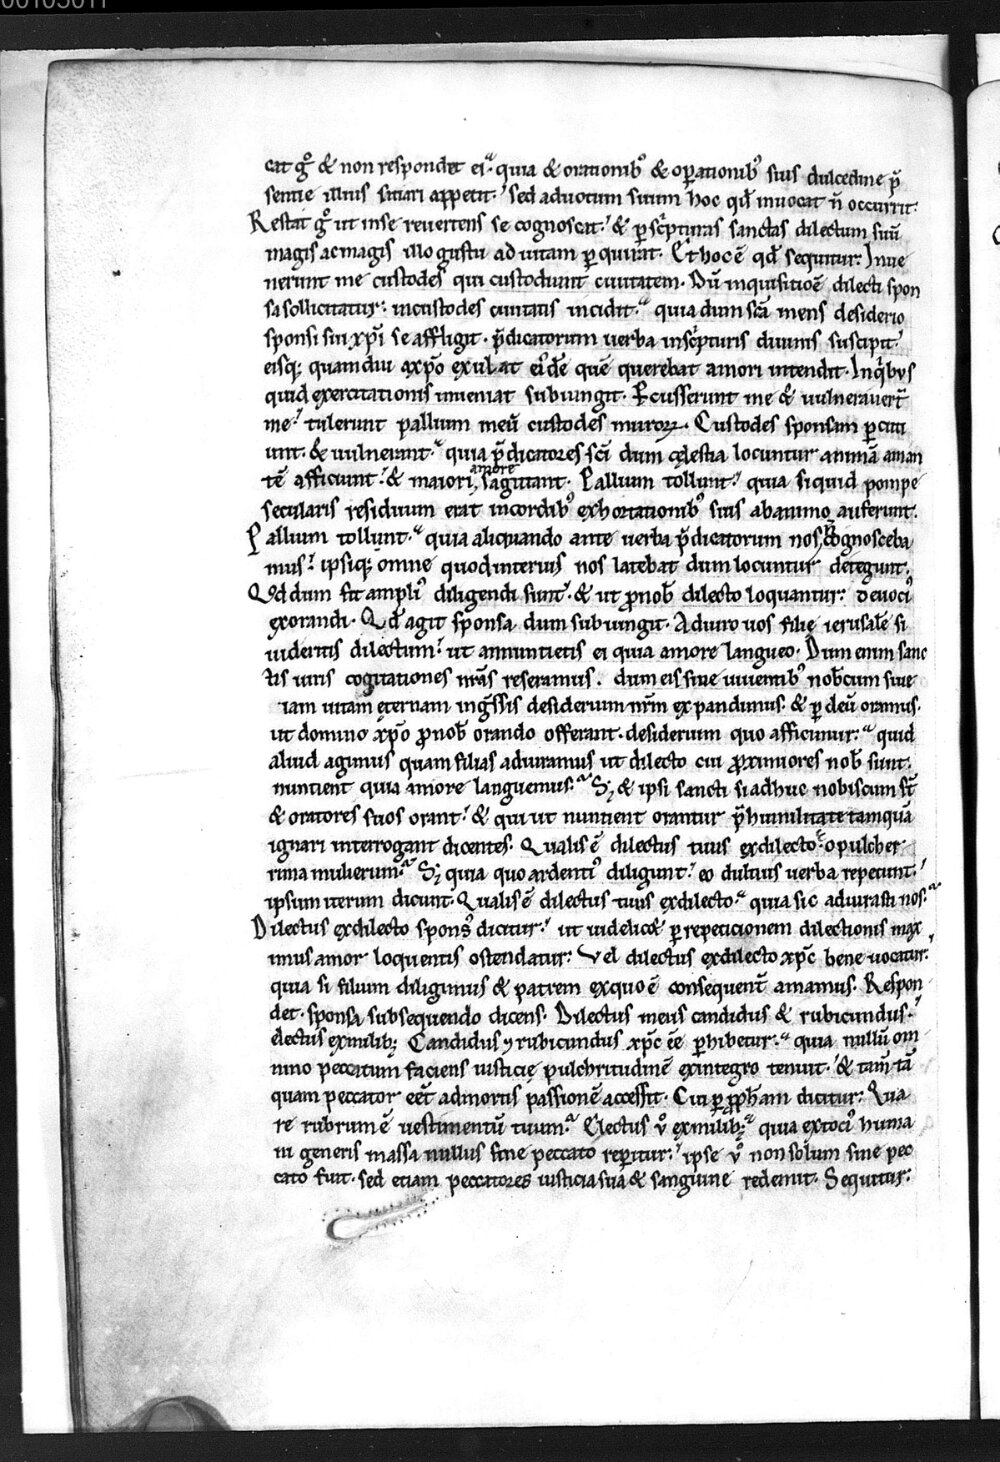 00103011
cat g̊ & non respondet ei. quia & orationib; & op̄ationib; suis dulcedine p̄
sentie illius sitiari appetit. sed aduotum suum hoc qd̄ inuocat n̄ occurrit.
Restat g̊ ut inse reuertens se cognoscat. & p̄ sc̄pturas sanctas dilectum suū
magis ac magis illo gustu ad uitam p̄quirat. Et hoc ē qd̄ sequitur. Inue
nerunt me custodes qui custodiunt ciuitatem. Dū inquisitioē dilecti spon
sa sollicitatur. incustodes ciuitatis incidit. quia dum sc̄a mens desiderio
sponsi sui xp̄i se affligit. p̄dicatorum uerba insc̄pturis diuinis suscipit.
eisq; quamdiu axp̄o exulat eid̄e quē querebat amori intendit. Inq̄bus
quid exercitationis inueniat subiungit. P̄cusserunt me & uulnerauert̄
me. tulerunt pallium meū custodes muroꝝ. Custodes sponsam p̄cuti
unt. & uulnerant. quia p̄dicatores sc̄i dum celestia locuntur animā aman
tē afficiunt. & maiori amore sagittant. Pallium tollunt. quia siquid pompe
secularis residuum erat incordib; exhortationib; suis abanimo auferunt.
Pallium tollunt. quia aliquando ante uerba p̄dicatorum nos cognosceba
mus. ipsiq; omne quod interius nos latebat dum locuntur detegunt.
Qd̄ dum fit ampli; diligendi sunt. & ut p̄nob̄ dilecto loquantur. deuoci;
exorandi. Qd̄ agit sponsa dum subiungit. Adiuro uos filie ierusalē si
uideritis dilectum. ut annuntietis ei quia amore langueo. Dum enim sanc
tis uiris cogitationes nr̄as reseramus. dum eis siue uiuentib; nob̄cum siue
iam uitam eternam inḡssis desiderium nr̄m expandimus. & p̄ deū oramus.
ut domino xp̄o p̄nob̄ orando offerant. desiderium quo afficimur. quid
aliud agimus quam filias adiuramus ut dilecto cui p̄ximiores nob̄ sunt.
nuntient quia amore languemus. S; & ipsi sancti si adhuc nobiscum st̄
& oratores suos orant. & qui ut nuntient orantur p̄ humilitate tamquā
ignari interrogant dicentes. Qualis ē dilectus tuus exdilecto. o pulcher
rima mulierum. S; quia quo ardenti; diligunt. eo diutius uerba repetunt.
ipsum iterum dicunt. Qualis ē dilectus tuus exdilecto. quia sic adiurasti nos.
Dilectus exdilecto spons; dicitur. ut uidelicet p̄ repeticionem dilectionis max
imus amor loquentis ostendatur. Vel dilectus exdilecto xp̄c bene uocatur.
quia si filium diligimus & patrem exquo ē consequent̄ amamus. Respon
det. sponsa subsequendo dicens. Dilectus meus candidus & rubicundus.
electus exmilib; Candidus ⁊ rubicundus xp̄c ēe p̄hibetur. quia nullū om
nino peccatum faciens iusticie pulchritudinē exintegro tenuit. & tam̄ tā
quam peccator eēt admortis passionē accessit. Cui p̄ p̄p̄h̄am dicitur. Qua
re rubrum ē uestimentū tuum. Electus ů exmilib; quia extoci; huma
ni generis massa nullus sine peccato rep̄itur. ipse ů non solum sine pec
cato fuit. sed etiam peccatores iusticia sua & sanguine redemit. Sequitur.